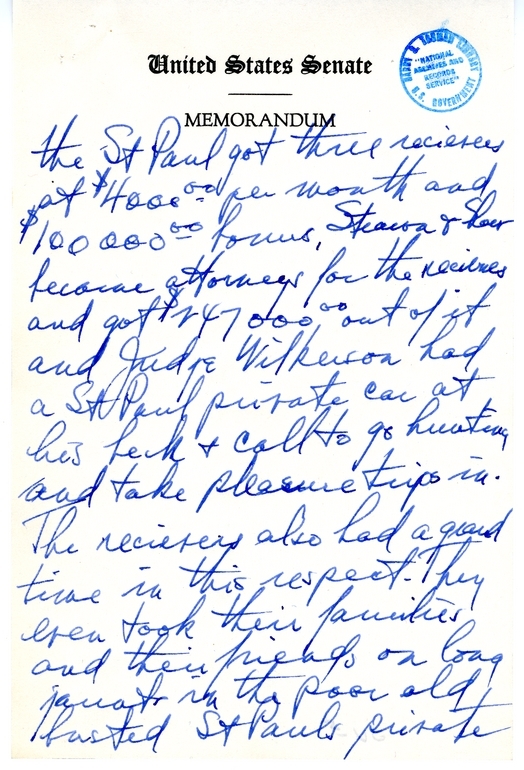 United States Senate
MEMORANDUM
HARRY S. TRUMAN LIBRARY
"NATIONAL
ARCHIVES AND
RECORDS
SERVICE"
U.S. GOVERNMENT
the St Paul got three recievers
at $4000.00 per month and
$100 000.00 bonus, &
become attorneys for the recievers
and got $247000.00 out of it
and Judge Wilkerson had
a St Paul private car at
his beck & call to go hunting
and take pleasure trips in.
The recievers also had a grand
time in this respect. They
even took their families
and their friends on long
jaunts in the poor old
busted St Pauls private